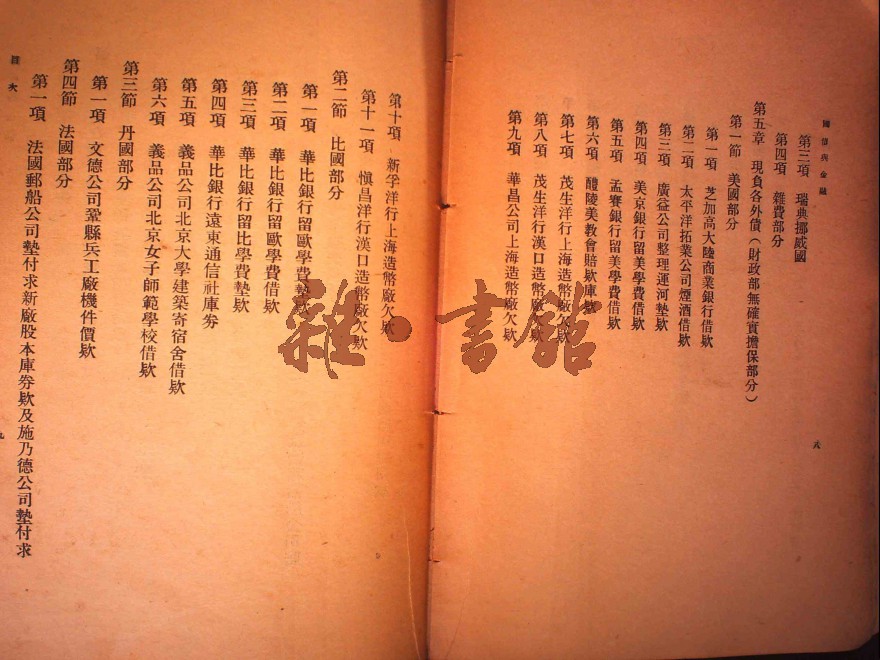 國債與金融
第三項 瑞典挪威國
第四項 雜費部分
第五章 現負各外債(財政部無確實擔保部分)
第一節 美國部分
第一項 芝加高大陸商業銀行借欵
第二項 太平洋拓業公司煙酒借欵
第三項 廣益公司整理運河墊欵
第四項 美京銀行留美學費借欵
第五項 孟賽銀行留美學費借欵
第六項 醴陵美教會賠欵庫欵
第七項 茂生洋行上海造幣廠欠欵
第八項 茂生洋行漢口造幣廠欠欵
第九項 華昌公司上海造幣廠欠欵
八
第十項 新孚洋行上海造幣廠欠欵
第十一項 愼昌洋行漢口造幣廠欠欵
第二節 比國部分
第一項 華比銀行留歐學費墊欵
第二項 華比銀行留歐學費借欵
第三項 華比銀行留比學費墊欵
第四項 華比銀行遠東通信社庫券
第五項 義品公司北京大學建築寄宿舍借欵
第六項 義品公司北京女子師範學校借欵
第三節 丹國部分
第一項 文德公司鞏縣兵工廠機件價欵
第四節 法國部分
第一項 法國郵船公司墊付求新廠股本庫券欵及施乃德公司墊付求
目次
九
雜·書館